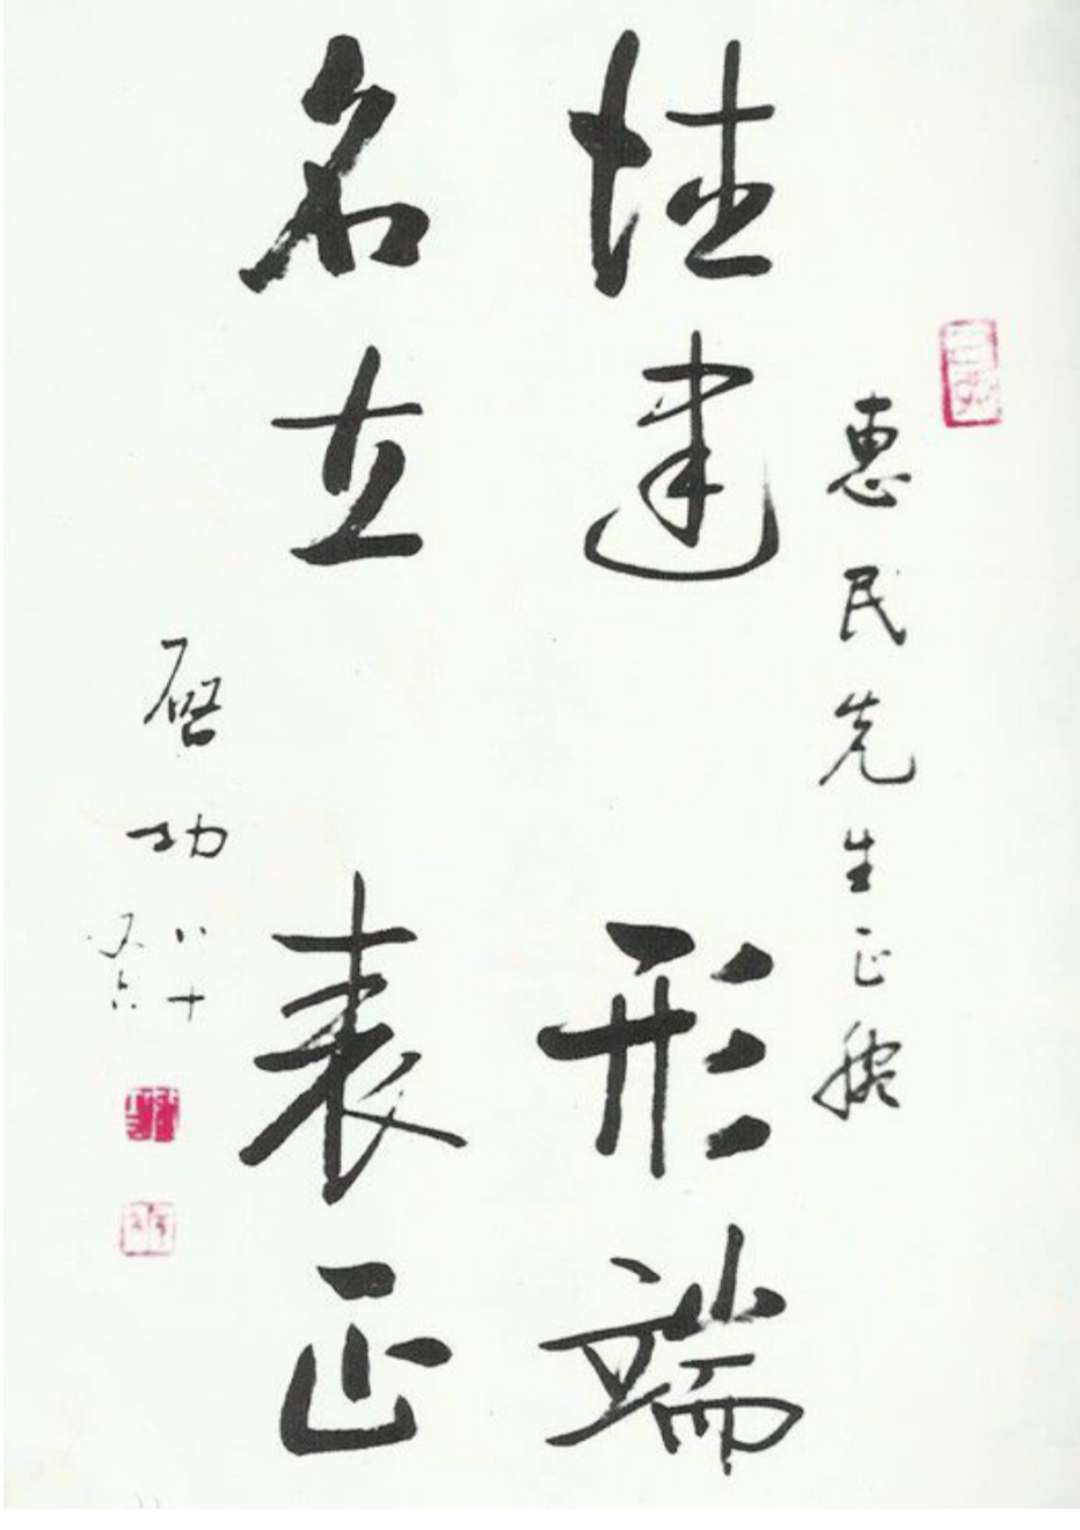 惠民先生正腕
德建
名立
形端
表正
啓功
八十
又六